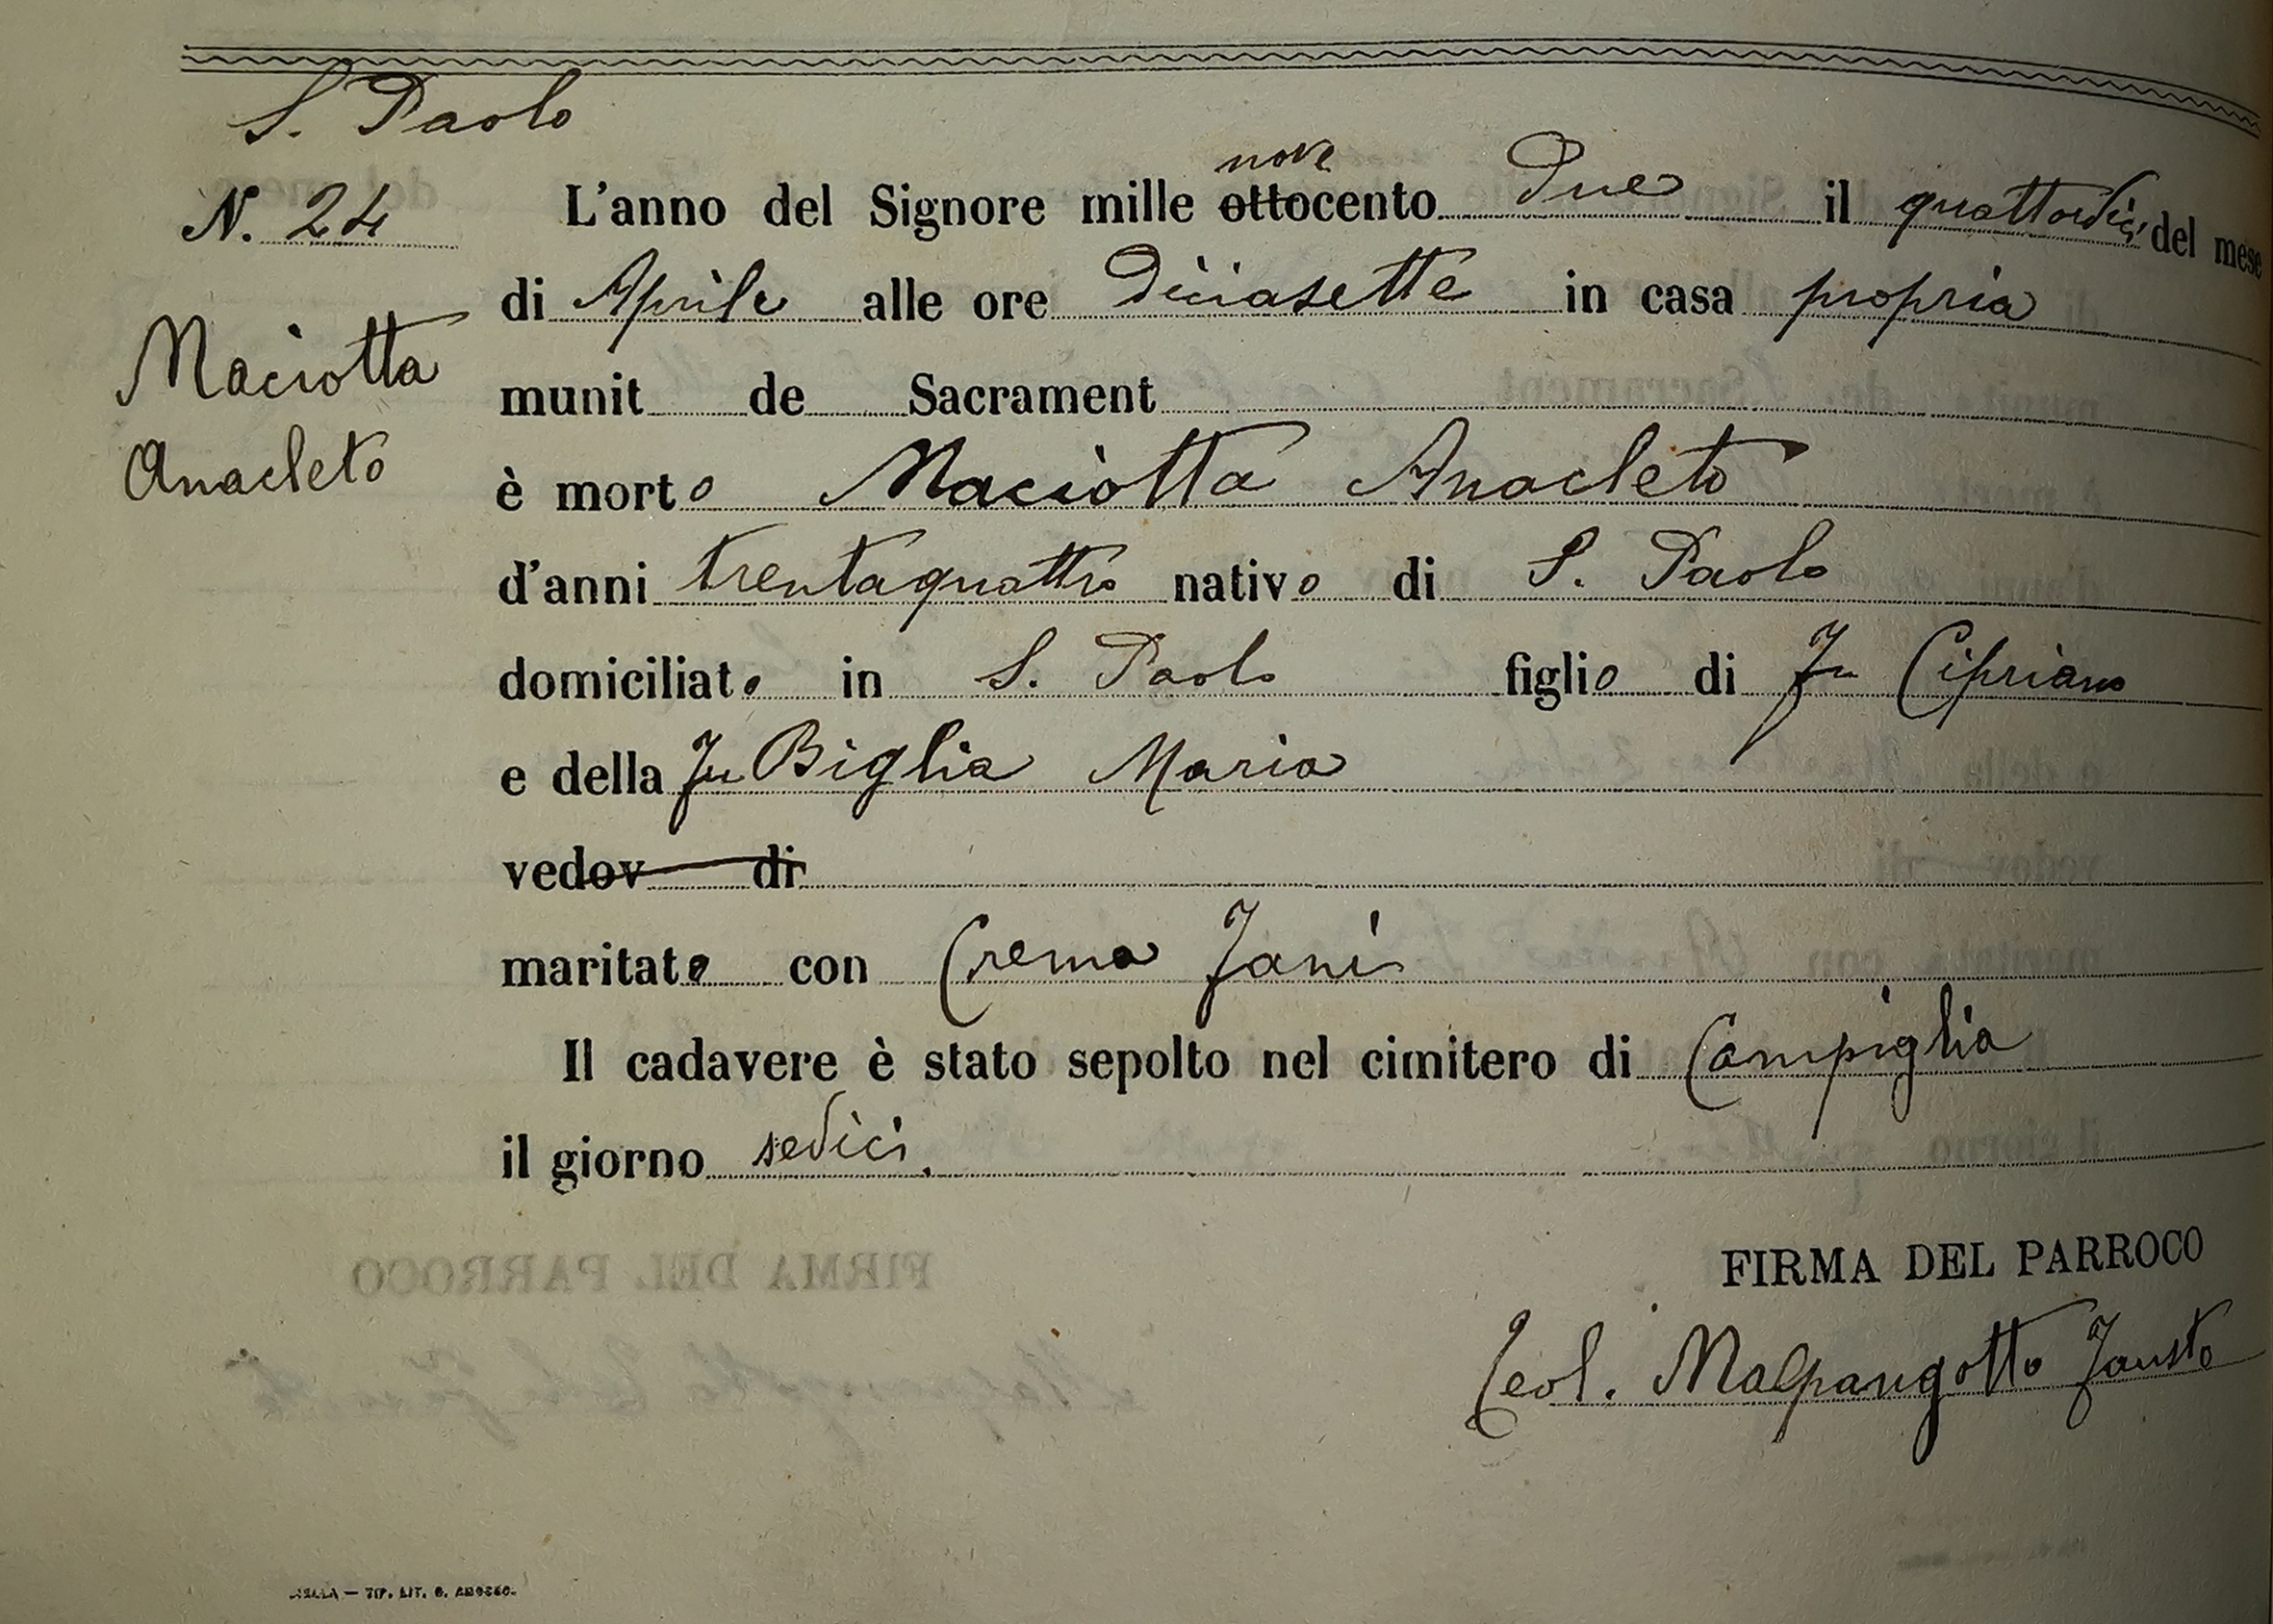 S. Paolo
nove
N. 24 L'anno del Signore mille ottocento Due il quattordici del mese
di Aprile alle ore Diciasette in casa propria
Maciotta
munit de Sacrament
Anacleto
è morto Maciotta Anacleto
d'anni trentaquattro nativo di S. Paolo
domiciliato in S. Paolo figlio di Fu Cipriano
e della Fu Biglia Maria
vedov di
maritato con Crema Fani
Il cadavere è stato sepolto nel cimitero di Campiglia
il giorno sedici.
FIRMA DEL PARROCO
Teol. Malpangotto Fausto
TIP. LIT. G. AMOSSO.